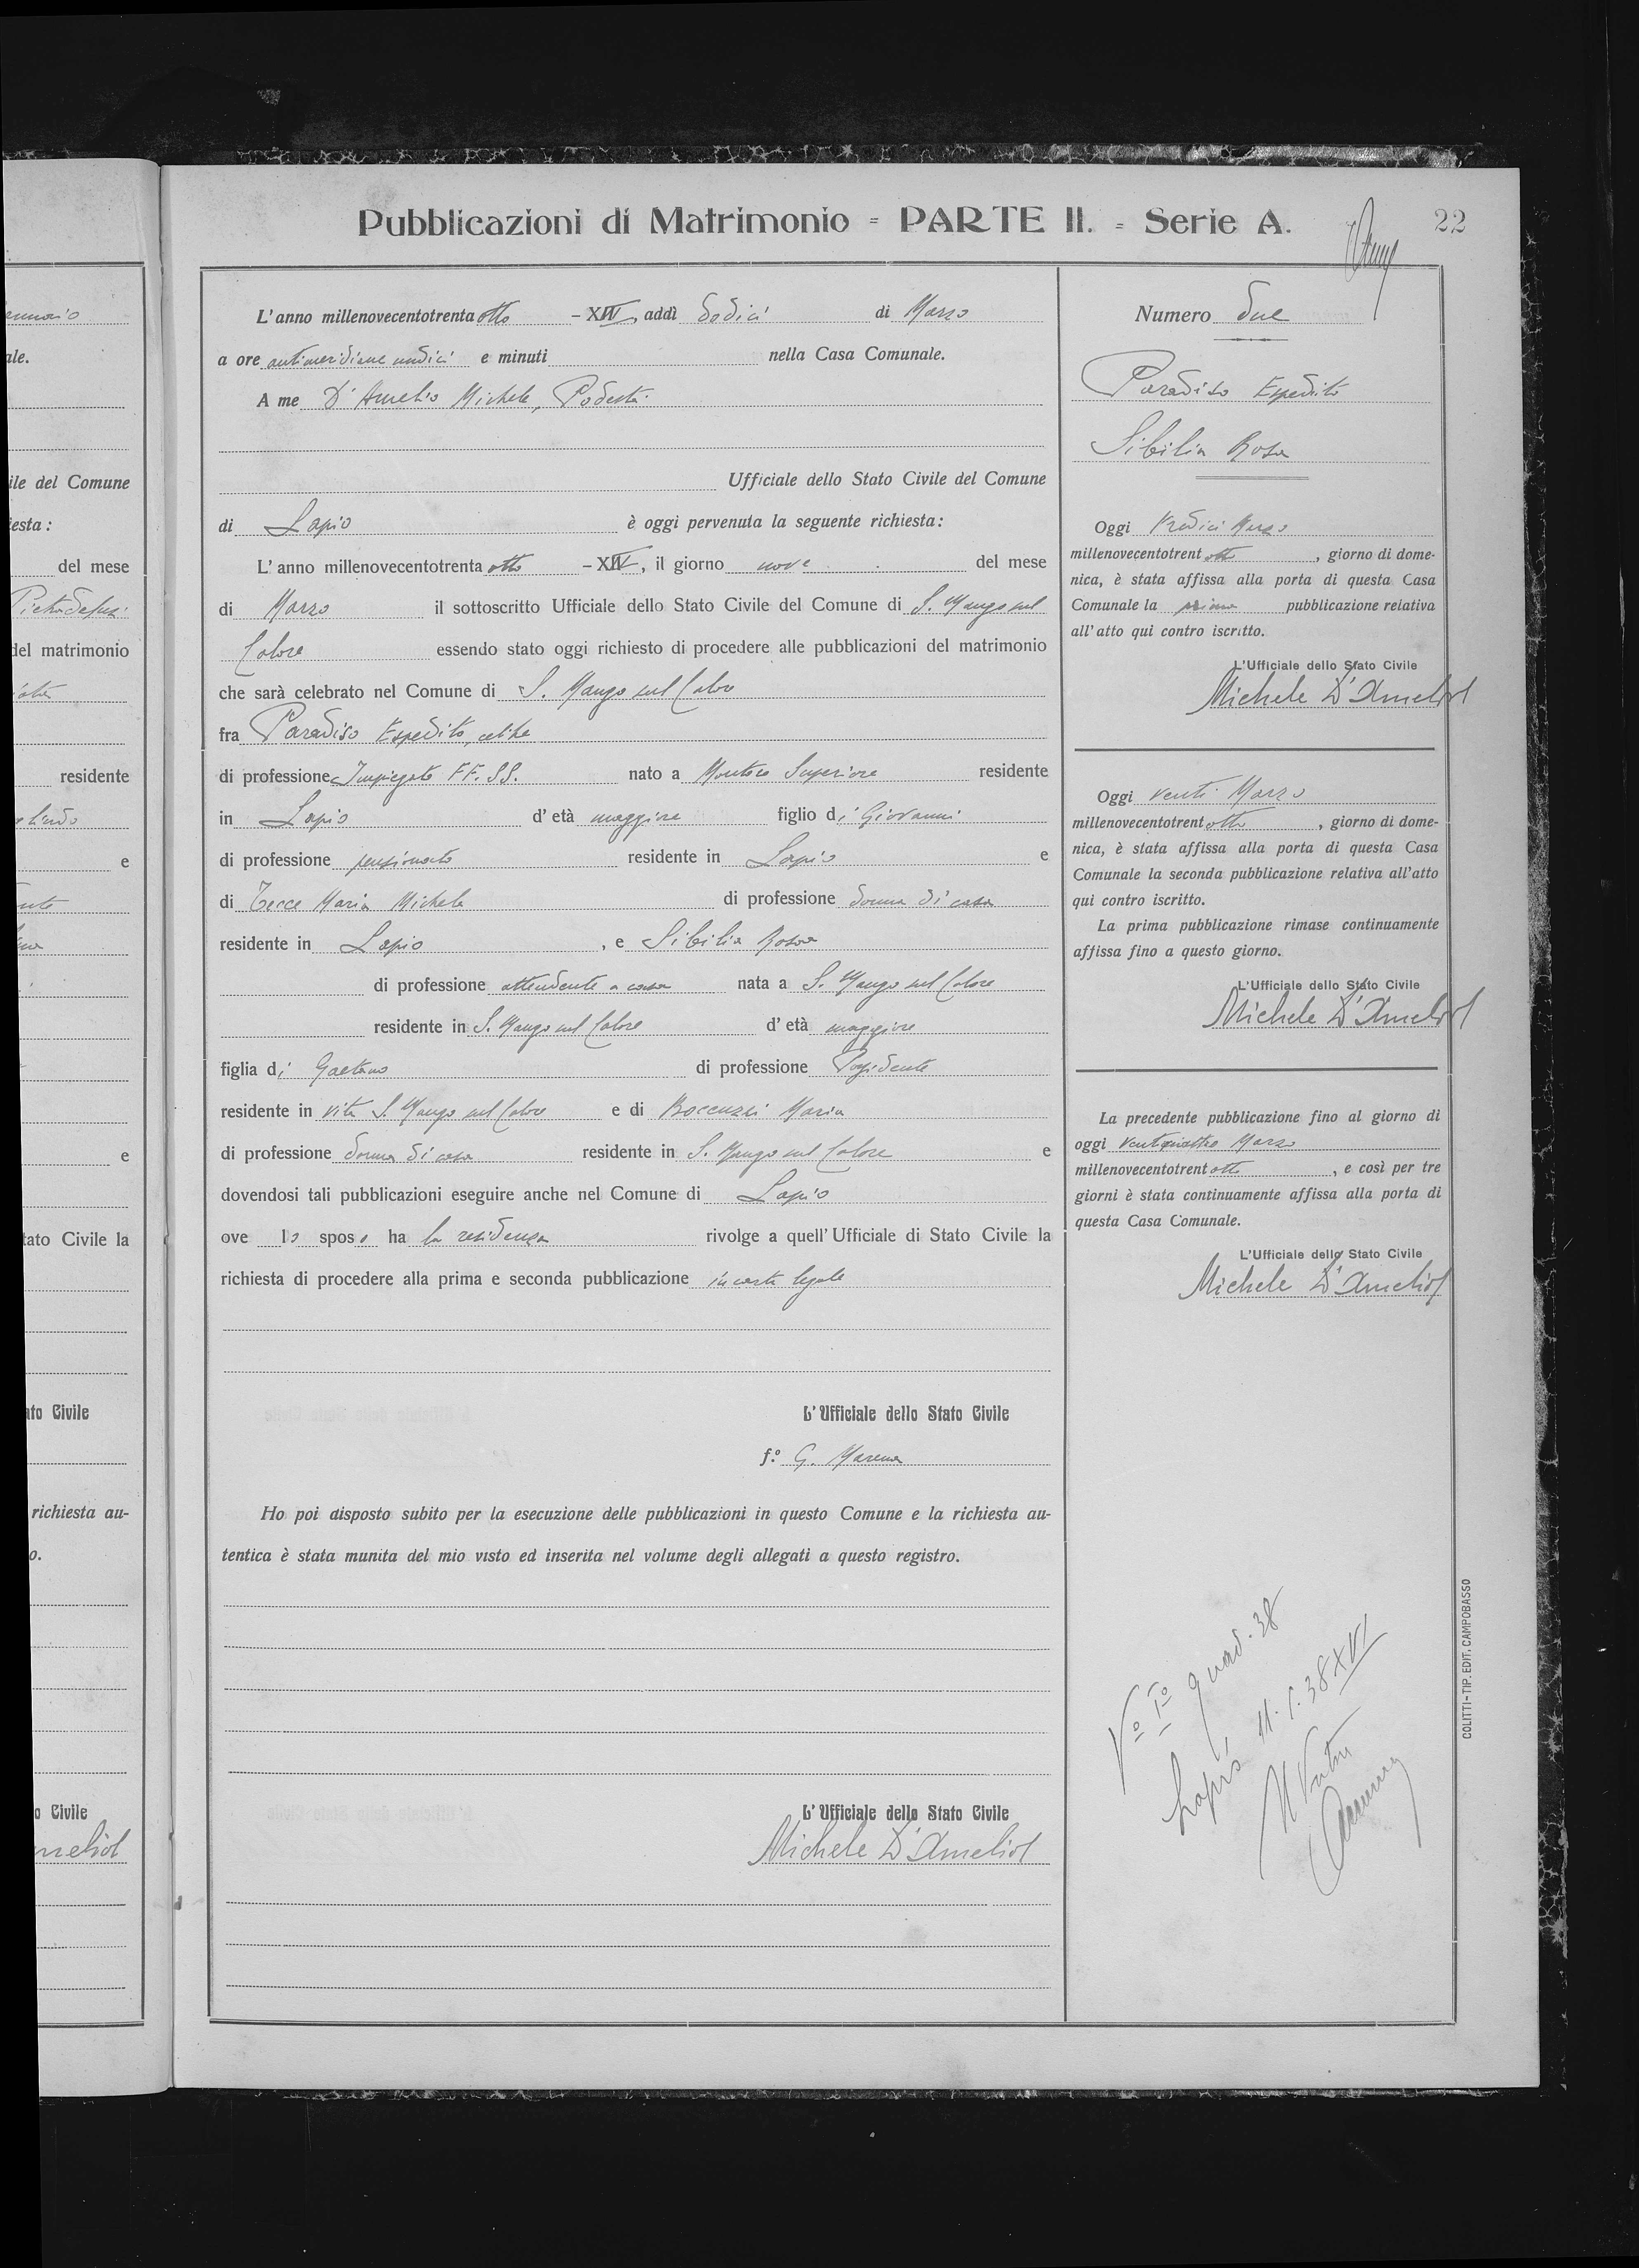 ennaio
ale.
ile del Comune
iesta:
del mese
Pietradefusi
del matrimonio
residente
e
e
tato Civile la
ato Civile
richiesta au-
o.
o Civile
meliof
Pubblicazioni di Matrimonio = PARTE II. = Serie A.
22
L'anno millenovecentotrenta otto - XVI, addì dodici di Marzo
a ore antimeridiane undici e minuti nella Casa Comunale.
A me D'Amelio Michele, Podestà
Ufficiale dello Stato Civile del Comune
di Lapio è oggi pervenuta la seguente richiesta:
L'anno millenovecentotrenta otto - XVI, il giorno nove del mese
di Marzo il sottoscritto Ufficiale dello Stato Civile del Comune di S. Mango sul
Calore essendo stato oggi richiesto di procedere alle pubblicazioni del matrimonio
che sarà celebrato nel Comune di S. Mango sul Calore
fra Paradiso Espedito, celibe
di professione Impiegato FF. SS. nato a Montoro Superiore residente
in Lapio d'età maggiore figlio di Giovanni
di professione pensionato residente in Lapio e
di Tecce Maria Michela di professione donna di casa
residente in Lapio, e Sibilia Rosa
di professione attendente a casa nata a S. Mango sul Calore
residente in S. Mango sul Calore d'età maggiore
figlia di Gaetano di professione Possidente
residente in vita S. Mango sul Calore e di Boccuzzi Maria
di professione donna di casa residente in S. Mango sul Calore e
dovendosi tali pubblicazioni eseguire anche nel Comune di Lapio
ove lo sposo ha la residenza rivolge a quell'Ufficiale di Stato Civile la
richiesta di procedere alla prima e seconda pubblicazione in carta legale
L'Ufficiale dello Stato Civile
f.o G. Marena
Ho poi disposto subito per la esecuzione delle pubblicazioni in questo Comune e la richiesta au-
tentica è stata munita del mio visto ed inserita nel volume degli allegati a questo registro.
L'Ufficiale dello Stato Civile
Michele D'Ameliof
Numero due
Paradiso Espedito
Sibilia Rosa
Oggi tredici Marzo
millenovecentotrent otto, giorno di dome-
nica, è stata affissa alla porta di questa Casa
Comunale la prima pubblicazione relativa
all'atto qui contro iscritto.
L'Ufficiale dello Stato Civile
Michele D'Ameliof
Oggi venti Marzo
millenovecentotrent otto, giorno di dome-
nica, è stata affissa alla porta di questa Casa
Comunale la seconda pubblicazione relativa all'atto
qui contro iscritto.
La prima pubblicazione rimase continuamente
affissa fino a questo giorno.
L'Ufficiale dello Stato Civile
Michele D'Ameliof
La precedente pubblicazione fino al giorno di
oggi ventiquattro Marzo
millenovecentotrent otto, e così per tre
giorni è stata continuamente affissa alla porta di
questa Casa Comunale.
L'Ufficiale dello Stato Civile
Michele D'Ameliof
Vo Io quad. 38
Lapio 11.5.38 XVI
COLITTI-TIP. EDIT. CAMPOBASSO